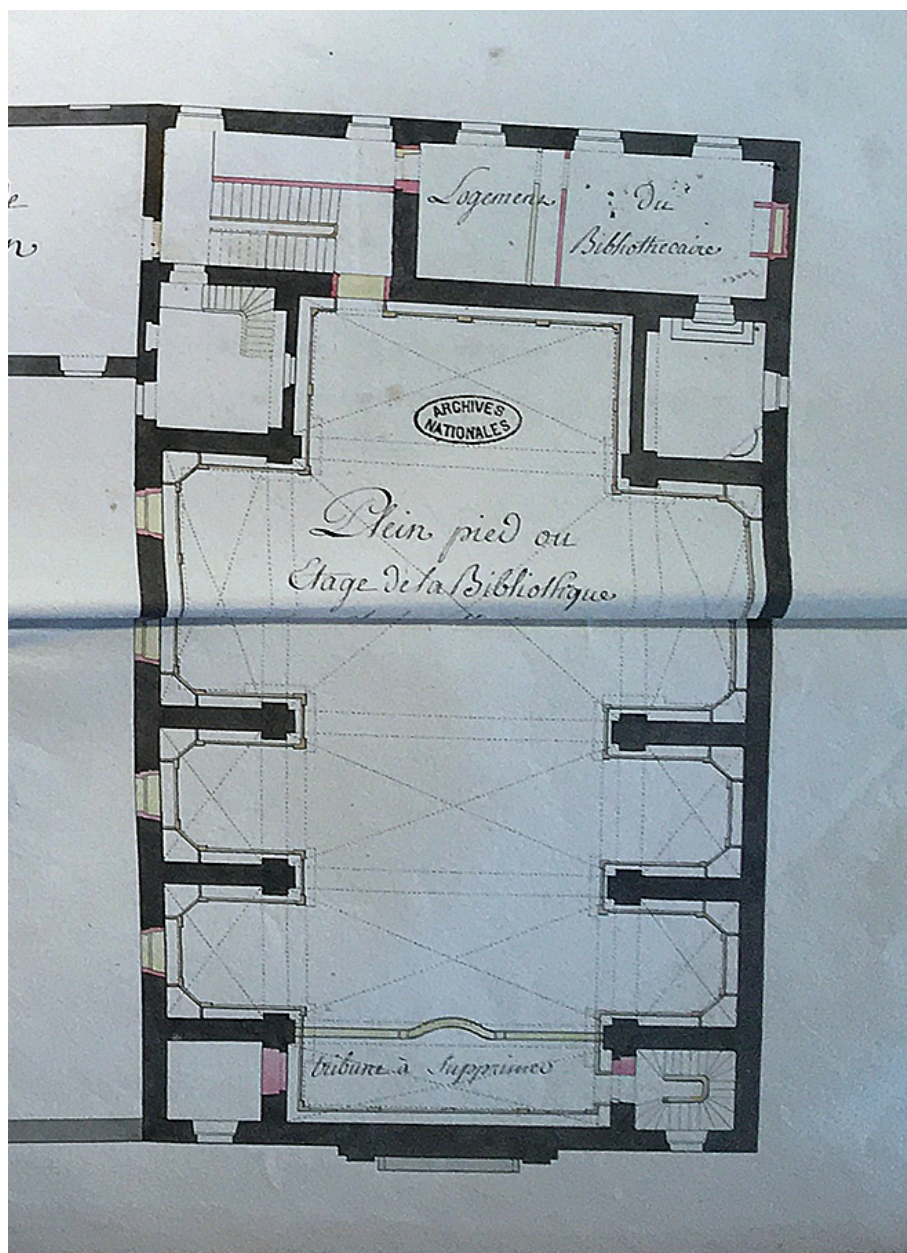 Logement
du
Bibliothecaire
ARCHIVES
NATIONALES
Plein pied ou
Etage de la Bibliothèque
tribune à Supprimer